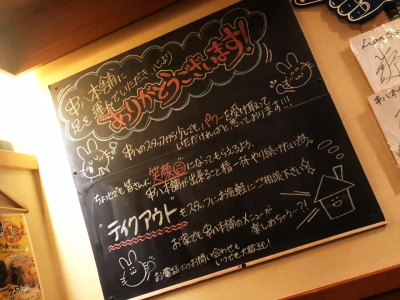 串八本舗に
足を運んでいただき
誠に
ありがとうございます!
串八のスタッフから少しでもパワーを受け取って
いただければと思っております!!!
ちょっとでも皆さんに笑顔になってもらえるよう、
串八本舗が出来ること精一杯やり続けたいです。
"テイクアウト"もスタッフにお気軽にご相談下さい☆
お家でも串八本舗のメニューが
楽しめちゃう〜?!
お電話でのお問い合わせも
いつでも大歓迎!